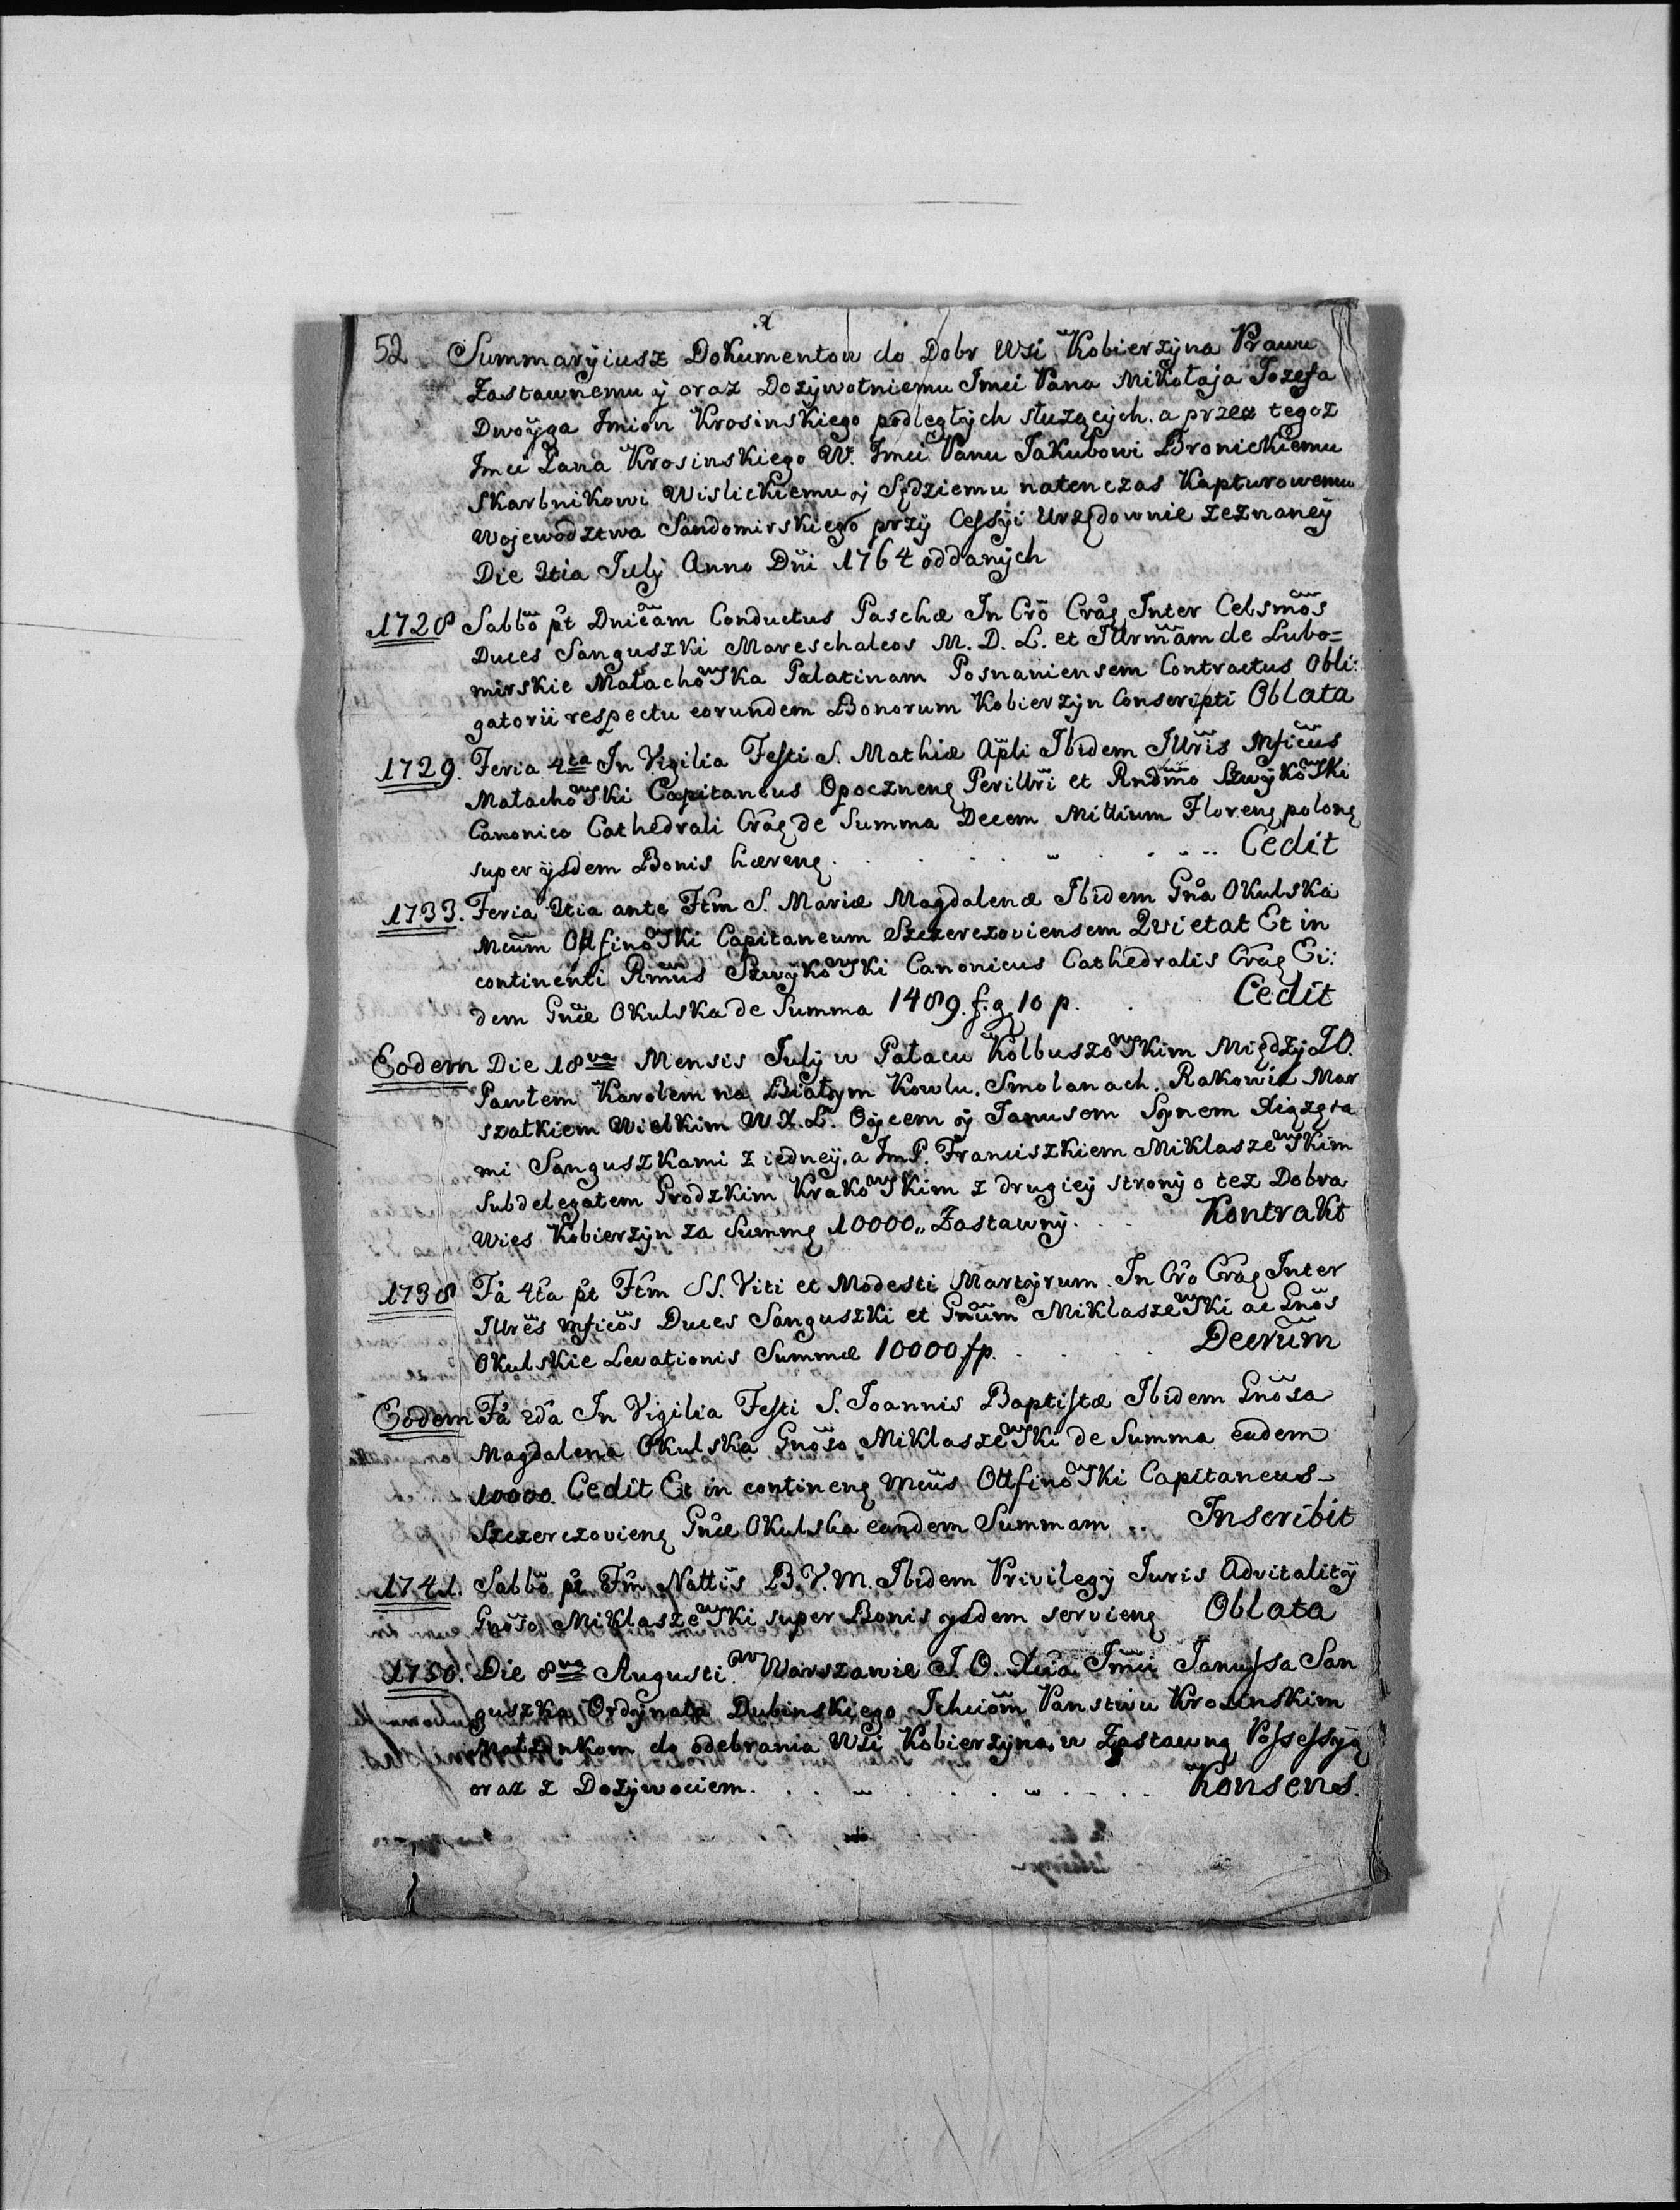 52 Summaryiusz Dokumentow do Dobr Wsi Kobierzyna Prawu
Zastawnemu ÿ oraz Dozywotniemu Jmci Pana Mikołaja Jozefa
Dwoÿga Jmion Krosinskiego podległych służących. a przez tegoz
Jmci Pana Krosinskiego W. Jmci Panu Jakubowi Bronickiemu
Skarbnikowi Wislickiemu ÿ Sędziemu natenczas Kapturowemu
Wojewodztwa Sandomirskiego przÿ Cessÿi Urzędownie zeznaneÿ
Die 2tia Julÿ Anno Dñi 1764 oddanÿch
1728 Sabbõ pt Dnicãm Conductus Paschæ In Crõ Crãc Inter Celsmõs
Duces Sanguszki Mareschalcos M. D. L. et Jllrmãm de Lubo=
mirskie Małachowska Palatinam Posnaniensem Contractus Obli:
gatorii respectu eorundem Bonorum Kobierzÿn Conscripti Oblata
1729. Feria 4ta In Vigilia Festi S. Mathiæ Apli Ibidem Jllris Mficus
Małachowski Capitaneus Opocznens Perillri et Rndmo Szwÿkowski
Canonico Cathedrali Crac de Summa Decem Millium Floren polon
super ÿsdem Bonis hæren . . . . . Cedit
1733. Feria 2tia ante Ftm S. Mariæ Magdalenæ Ibidem Gna Okulska
Mcum Ottfinowski Capitaneum Szczerczoviensem Quietat Et in
continenti Rmus Szwÿkowski Canonicus Cathedralis Crac Ei:
dem Gnæ Okulska de Summa 1489. f. g. 10 p. . Cedit
Eodem Die 18va Mensis Julÿ w Pałacu Kolbuszowskim Międzÿ JO.
Pawłem Karolem na Białym Kowlu, Smolanach, Rakowie Mar
szałkiem Wielkim W. X. L. Oÿcem ÿ Janusem Sÿnem Xiążęta
mi Sanguszkami z iedneÿ, a Jm P. Franciszkiem Miklaszewskim
Subdelegatem Grodzkim Krakowskim z drugieÿ stronÿ o tez Dobra
Wies Kobierzÿn za Summę 10000,, Zastawnÿ. . . Kontrakt
1738 Fa 4ta pt Ftm SS. Viti et Modesti Martÿrum. In Cro Crac Inter
Jllres Mficos Duces Sanguszki et Gnum Miklaszewski ac Gnos
Okulskie Levationis Summæ 10000 fp. . . . . Decrum
Eodem Fa 2da In Vigilia Festi S. Joannis Baptistæ Ibidem Gnosa
Magdalena Okulska Gnoso Miklaszewski de Summa eadem
10000. Cedit Et in continen Mcus Ottfinowski Capitaneus
Szczerczovien Gnæ Okulska eandem Summam . . Inscribit
1741. Sabbo pt Ftm Nattis B. V. M. Ibidem Privilegÿ Juris Advitalitÿ
Gnoso Miklaszewski super Bonis ÿsdem servien Oblata
1750. Die 8va Augusti w Warszawie J. O. Xcia Jmci Janussa San
guszka Ordÿnata Dubinskiego Ichmom Panstwu Krosinskim
Małżonkom do odebrania Wsi Kobierzÿna w Zastawną Possessÿą
oraz z Dozÿwociem. . . . . . . . Konsens.